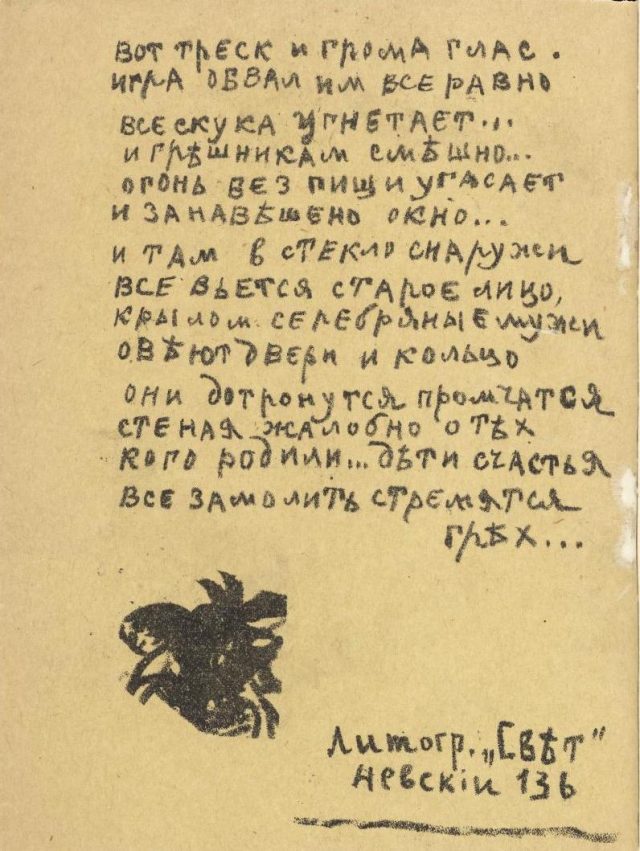 вот треск и грома глас.
игра обвал им все равно
все скука угнетает...
и грѣшникам смѣшно...
огонь без пищи угасает
и занавѣшено окно...
и там в стекло снаружи
все вьется старое лицо,
крылом серебряные мужи
овѣют двери и кольцо
они дотронутся промчатся
стеная жалобно о тѣх
кого родили... дѣти счастья
все замолить стремятся
грѣх...
Литогр. „Свѣт"
Невскiи 136